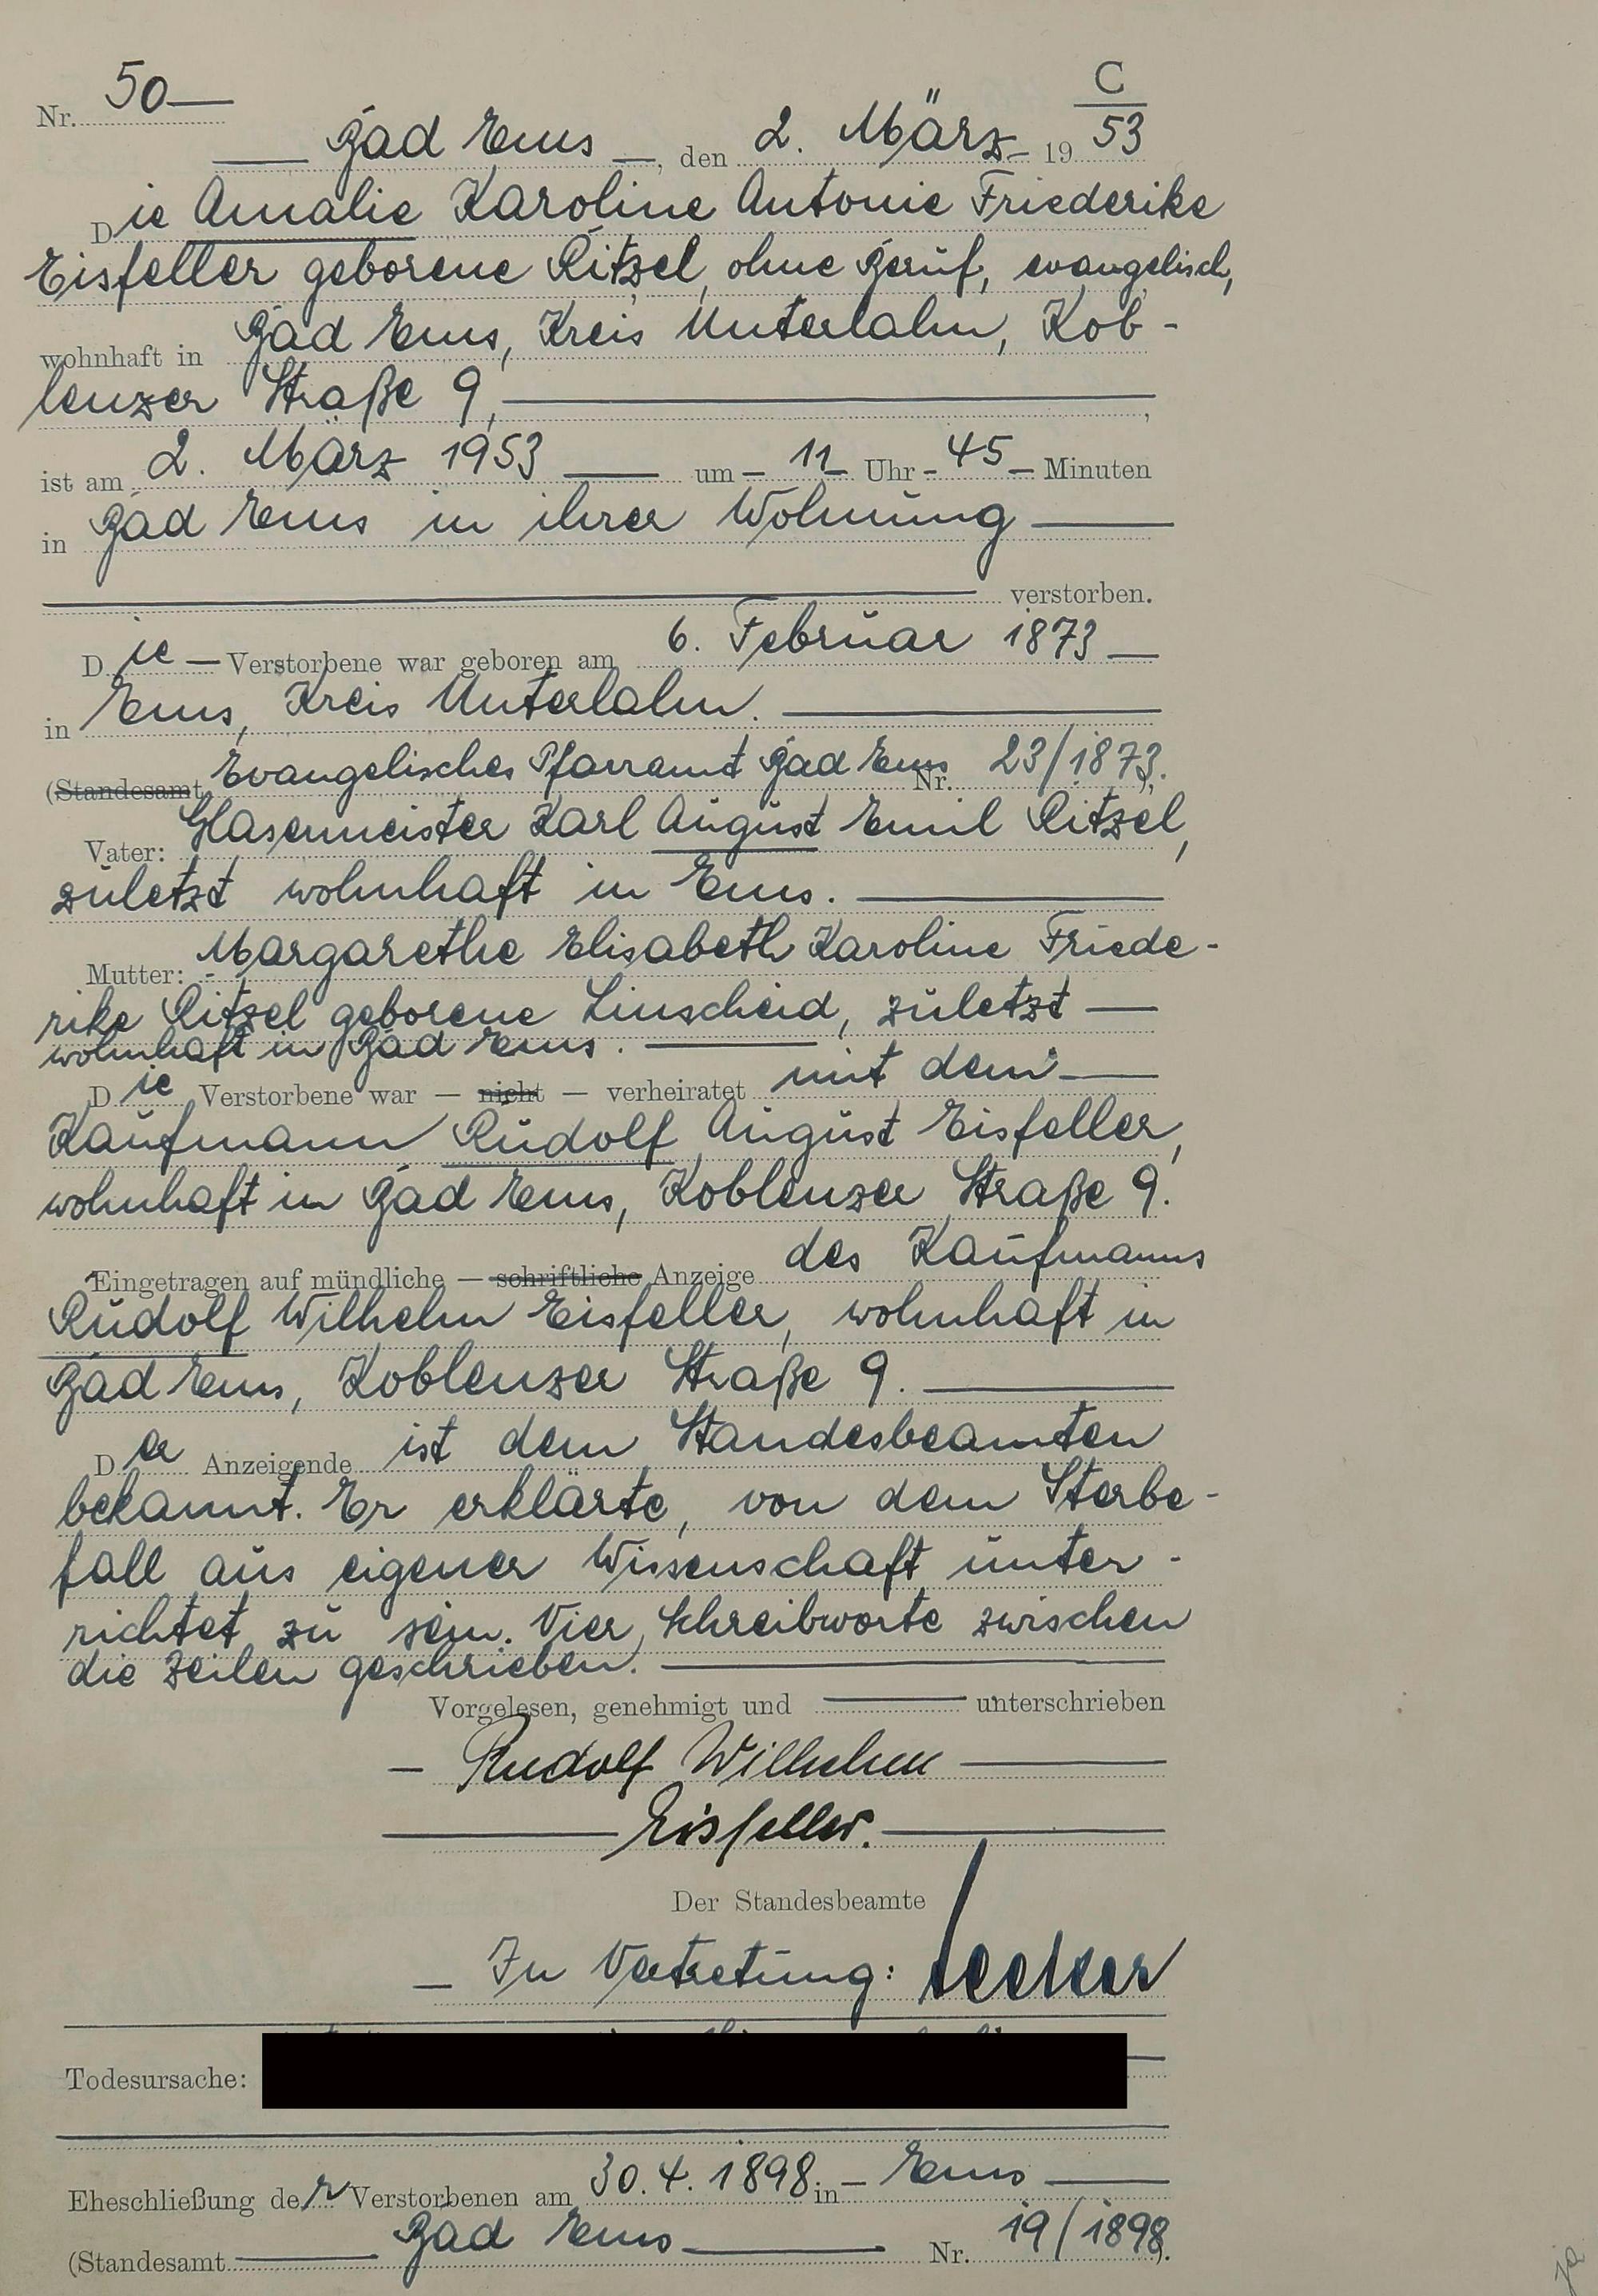 C
Nr. 50
Bad Ems, den 2. März 1953
Die Amalie Karoline Antonie Friederike
Eisfeller geborene Ritzel, ohne Beruf, evangelisch,
wohnhaft in Bad Ems, Kreis Unterlahn, Kob-
lenzer Straße 9,
ist am 2. März 1953 um 11 Uhr 45 Minuten
in Bad Ems in ihrer Wohnung
verstorben.
Die Verstorbene war geboren am 6. Februar 1873
in Ems, Kreis Unterlahn.
(Standesamt Evangelisches Pfarramt Bad Ems Nr. 23/1873.)
Vater: Glasermeister Karl August Emil Ritzel,
zuletzt wohnhaft in Ems.
Mutter: Margarethe Elisabeth Karoline Friede-
rike Ritzel geborene Linscheid, zuletzt
wohnhaft in Bad Ems.
Die Verstorbene war — nicht — verheiratet mit dem
Kaufmann Rudolf August Eisfeller,
wohnhaft in Bad Ems, Koblenzer Straße 9.
Eingetragen auf mündliche — schriftliche Anzeige des Kaufmanns
Rudolf Wilhelm Eisfeller, wohnhaft in
Bad Ems, Koblenzer Straße 9.
Der Anzeigende ist dem Standesbeamten
bekannt. Er erklärte, von dem Sterbe-
fall aus eigener Wissenschaft unter-
richtet zu sein. Vier Schreibworte zwischen
die Zeilen geschrieben.
Vorgelesen, genehmigt und unterschrieben
Rudolf Wilhelm
Eisfeller.
Der Standesbeamte
In Vertretung:
Todesursache:
Eheschließung der Verstorbenen am 30.4.1898 in Ems
(Standesamt Bad Ems Nr. 19/1898).